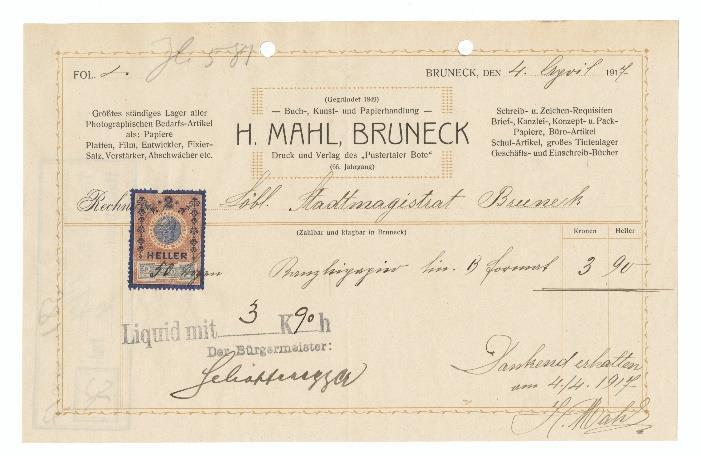 FOL. 1.
BRUNECK, DEN 4. April 1917
Größtes ständiges Lager aller
Photographischen Bedarfs-Artikel
als: Papiere
Platten, Film, Entwickler, Fixier-
Salz, Verstärker, Abschwächer etc.
(Gegründet 1849)
— Buch-, Kunst- und Papierhandlung —
H. MAHL, BRUNECK
Druck und Verlag des „Pustertaler Bote“
(66. Jahrgang)
Schreib- u. Zeichen-Requisiten
Brief-, Kanzlei-, Konzept- u. Pack-
Papiere, Büro-Artikel
Schul-Artikel, großes Tintenlager
Geschäfts- und Einschreib-Bücher
Löbl. Stadtmagistrat Bruneck
2
HELLER
(Zahlbar und klagbar in Bruneck)
Kronen Heller
50 Bogen Kanzleipapier lin. B format 3 90
Liquid mit 3 K 90 h
Der Bürgermeister:
Dankend erhalten
am 4./4. 1917
H. Mahl